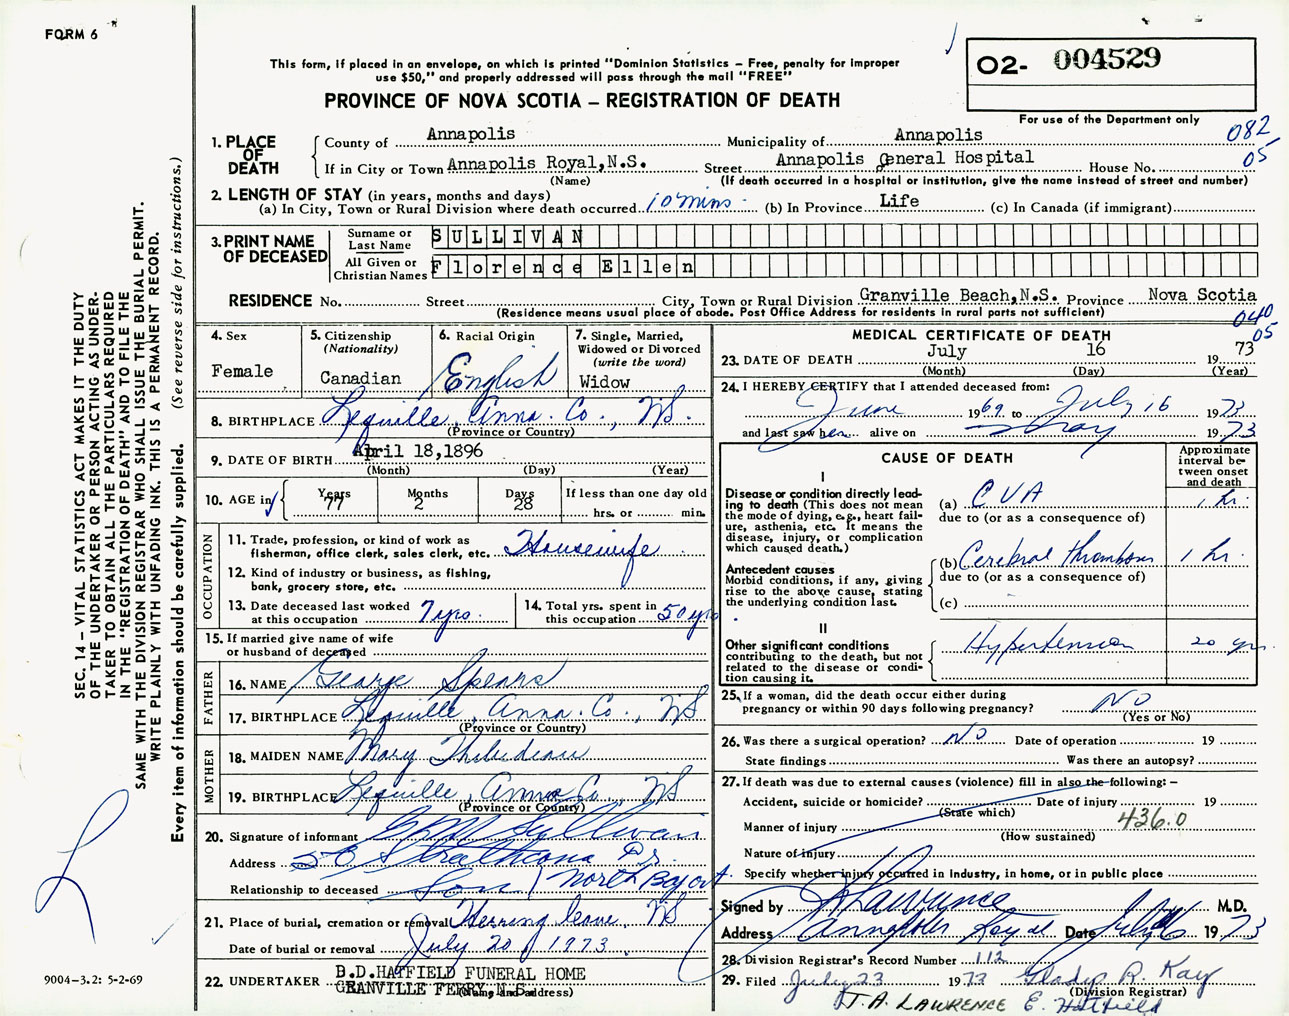 FORM 6
This form, if placed in an envelope, on which is printed "Dominion Statistics – Free, penalty for improper
use $50," and properly addressed will pass through the mail "FREE"
PROVINCE OF NOVA SCOTIA – REGISTRATION OF DEATH
O2- 004529
For use of the Department only
082
05
1. PLACE OF DEATH
County of Annapolis Municipality of Annapolis
If in City or Town Annapolis Royal, N.S. Street Annapolis General Hospital House No.
(Name) (If death occurred in a hospital or institution, give the name instead of street and number)
2. LENGTH OF STAY (in years, months and days)
(a) In City, Town or Rural Division where death occurred 10 mins. (b) In Province Life (c) In Canada (if immigrant)
3. PRINT NAME OF DECEASED
Surname or Last Name SULLIVAN
All Given or Christian Names Florence Ellen
RESIDENCE No. Street City, Town or Rural Division Granville Beach, N.S. Province Nova Scotia
(Residence means usual place of abode. Post Office Address for residents in rural parts not sufficient)
040
05
4. Sex Female
5. Citizenship (Nationality) Canadian
6. Racial Origin English
7. Single, Married, Widowed or Divorced (write the word) Widow
8. BIRTHPLACE Lequille, Anna. Co., NS.
(Province or Country)
9. DATE OF BIRTH April 18, 1896
(Month) (Day) (Year)
10. AGE in Years 77 Months 2 Days 28 If less than one day old hrs. or min.
OCCUPATION
11. Trade, profession, or kind of work as
fisherman, office clerk, sales clerk, etc. Housewife
12. Kind of industry or business, as fishing,
bank, grocery store, etc.
13. Date deceased last worked at this occupation 7 yrs.
14. Total yrs. spent in this occupation 50 yrs
15. If married give name of wife
or husband of deceased
FATHER
16. NAME George Spears
17. BIRTHPLACE Lequille, Anna. Co., NS
(Province or Country)
MOTHER
18. MAIDEN NAME Mary Thibideau
19. BIRTHPLACE Lequille, Anna Co., NS
(Province or Country)
20. Signature of informant Sullivan
Address 58 Strathcona Dr.
Relationship to deceased Son / North Bay ont.
21. Place of burial, cremation or removal Herring Cove, NS
Date of burial or removal July 20, 1973
22. UNDERTAKER B.D.HATFIELD FUNERAL HOME
GRANVILLE FERRY, N.S.
(Name and address)
MEDICAL CERTIFICATE OF DEATH
23. DATE OF DEATH July 16 19 73
(Month) (Day) (Year)
24. I HEREBY CERTIFY that I attended deceased from:
June 1969 to July 16 1973
and last saw her alive on 1973
CAUSE OF DEATH
Approximate interval between onset and death
I
Disease or condition directly leading to death (This does not mean the mode of dying, e.g., heart failure, asthenia, etc. It means the disease, injury, or complication which caused death.)
(a) CVA 1 hr.
due to (or as a consequence of)
Antecedent causes
Morbid conditions, if any, giving rise to the above cause, stating the underlying condition last.
(b) Cerebral thrombosis 1 hr.
due to (or as a consequence of)
(c)
II
Other significant conditions
contributing to the death, but not related to the disease or condition causing it.
Hypertension 20 yrs.
25. If a woman, did the death occur either during
pregnancy or within 90 days following pregnancy? NO
(Yes or No)
26. Was there a surgical operation? NO Date of operation 19
State findings Was there an autopsy?
27. If death was due to external causes (violence) fill in also the following: –
Accident, suicide or homicide? Date of injury 19
(State which)
Manner of injury 436.0
(How sustained)
Nature of injury
Specify whether injury occurred in industry, in home, or in public place
Signed by Lawrence M.D.
Address Annapolis Royal Date July 16 1973
28. Division Registrar's Record Number 112
29. Filed July 23 1973 Gladys R. Kay
(Division Registrar)
J. A. LAWRENCE E. Hatfield
SEC. 14 – VITAL STATISTICS ACT MAKES IT THE DUTY
OF THE UNDERTAKER OR PERSON ACTING AS UNDERTAKER
TO OBTAIN ALL THE PARTICULARS REQUIRED
IN THE "REGISTRATION OF DEATH" AND TO FILE THE
SAME WITH THE DIVISION REGISTRAR WHO SHALL ISSUE THE BURIAL PERMIT.
WRITE PLAINLY WITH UNFADING INK. THIS IS A PERMANENT RECORD.
Every item of information should be carefully supplied. (See reverse side for instructions.)
9004–3.2: 5-2-69